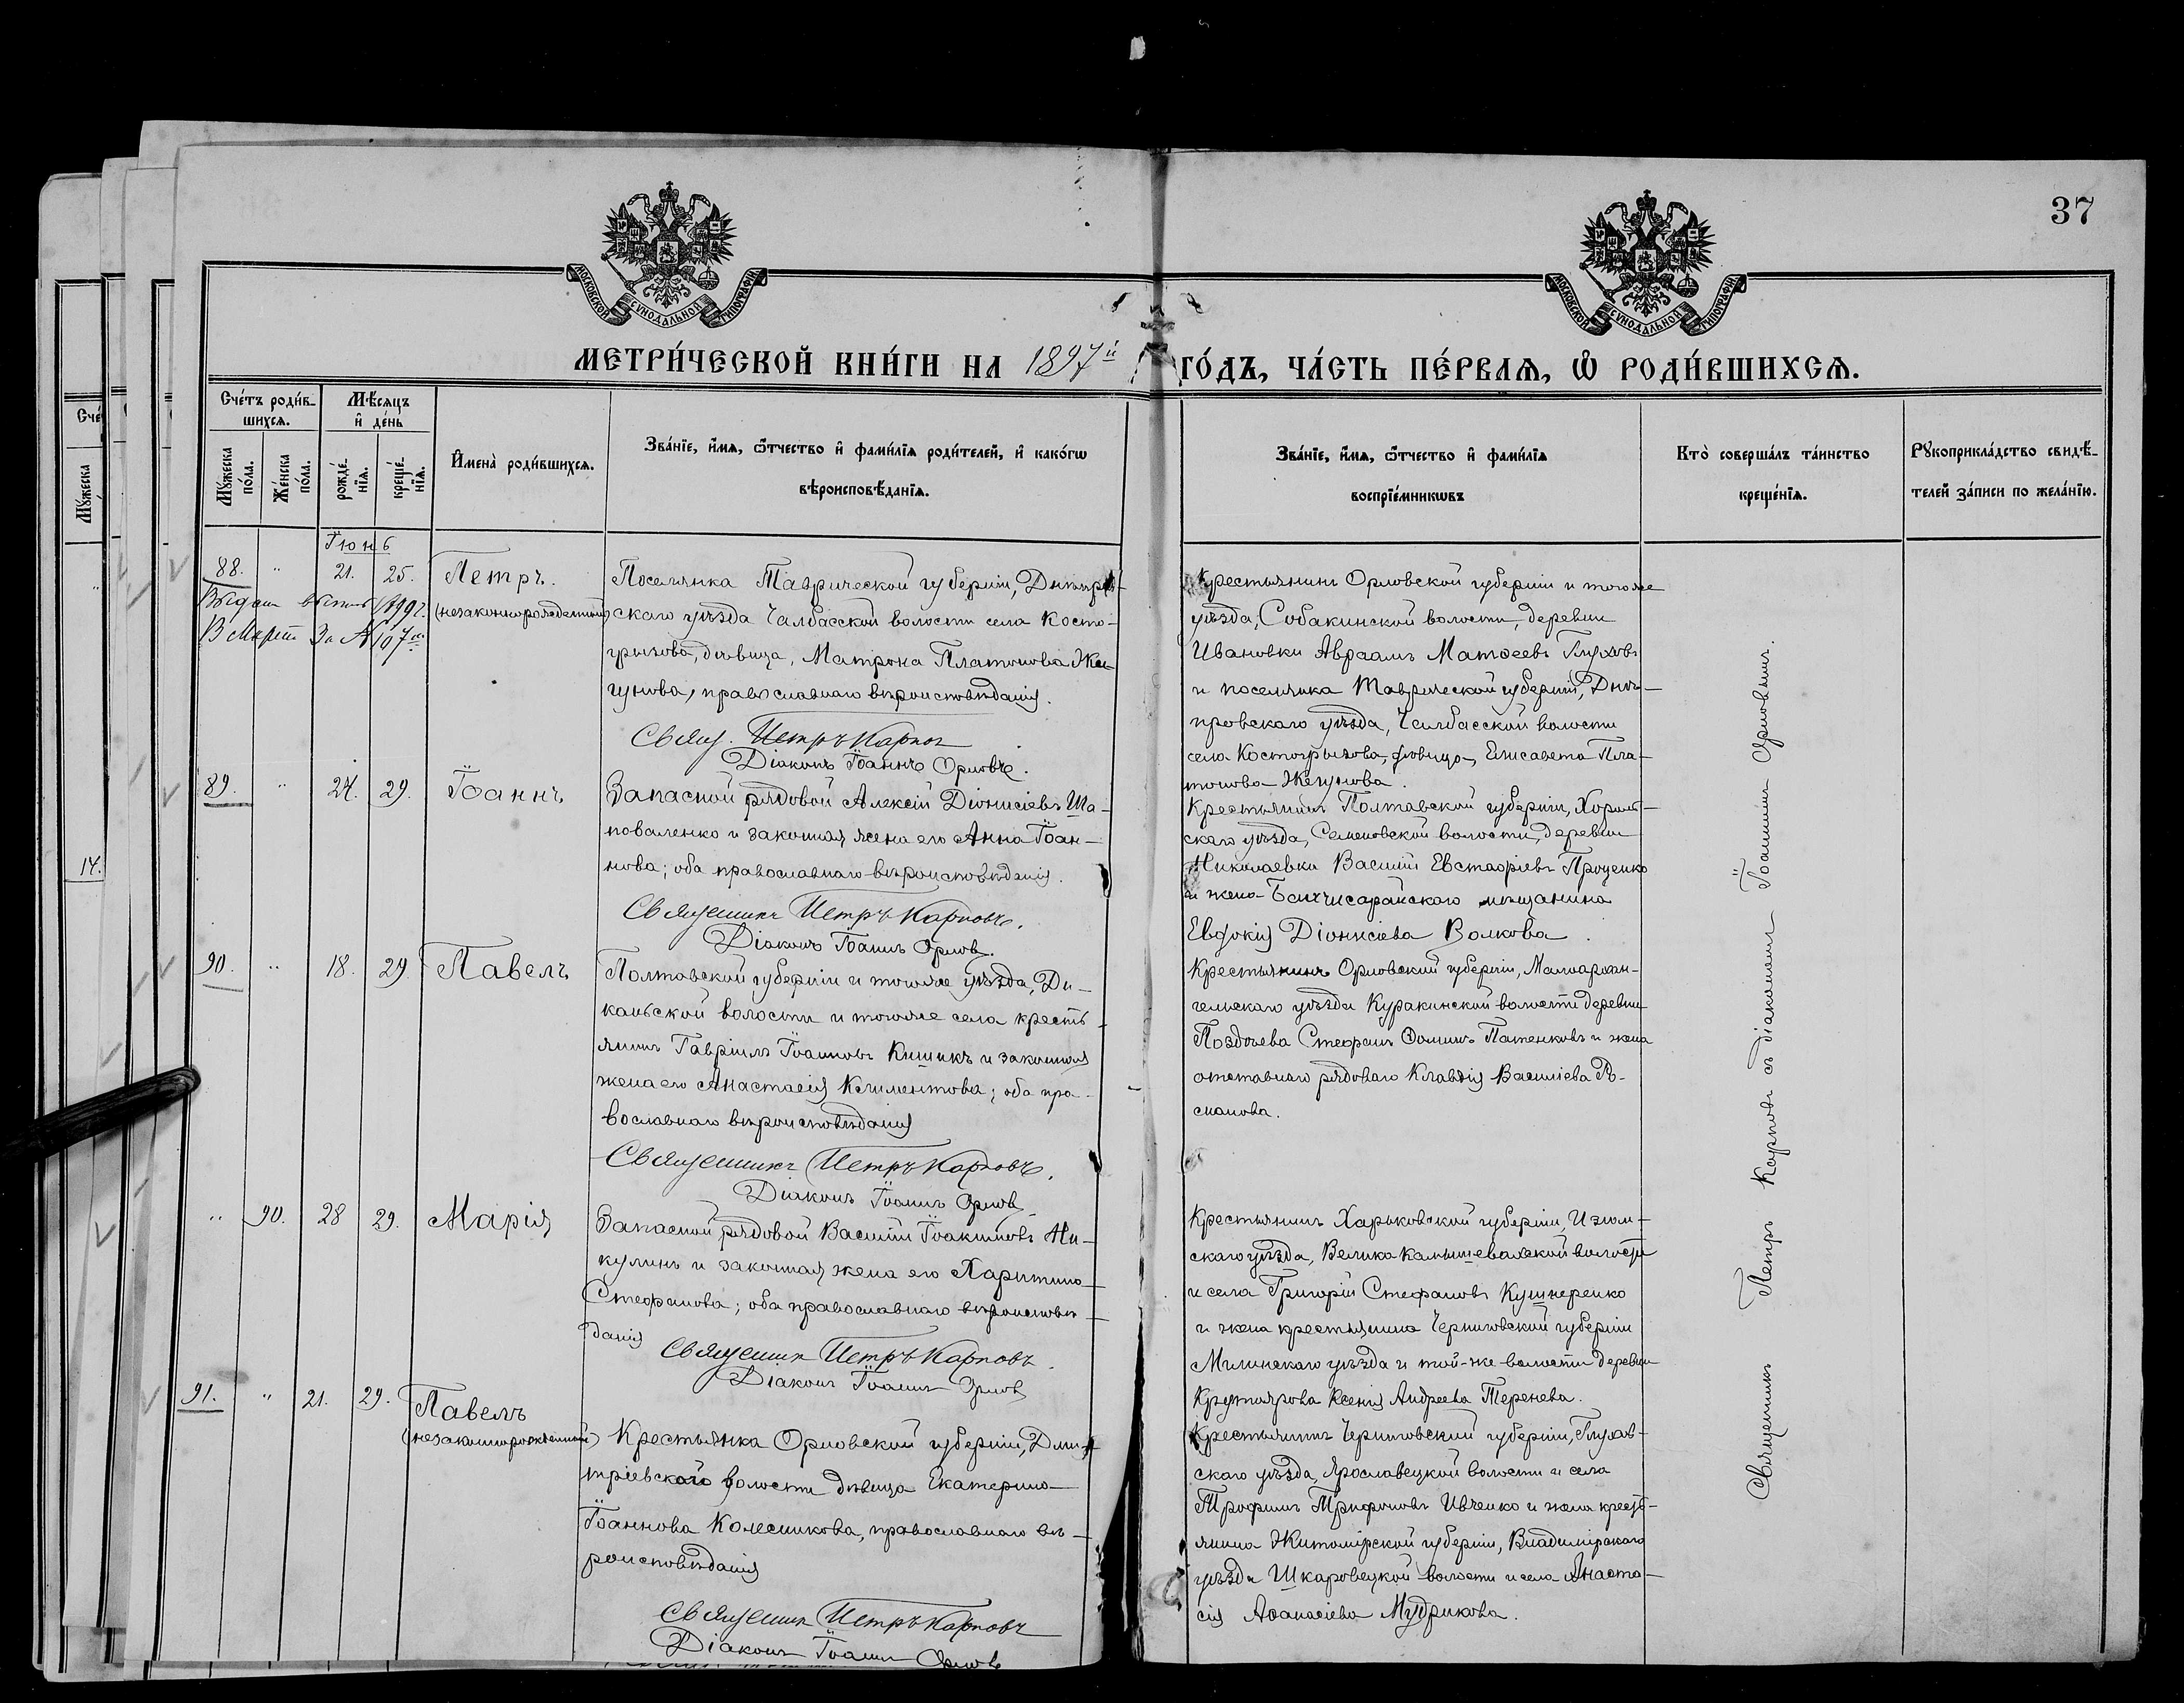 37
МОСКОВСКОЙ СУНОДАЛЬНОЙ ТИПОГРАФІИ
МОСКОВСКОЙ СУНОДАЛЬНОЙ ТИПОГРАФІИ
МЕТРИ́ЧЕСКОЙ КНИ́ГИ НА 1897й ГО́ДЪ, ЧА́СТЬ ПЕ́РВАЯ, Ѿ РОДИ́ВШИХСЯ.
Сче́тъ роди́в-
шихся.
Мѣ́сяцъ
и҆ де́нь
Мꙋжеска
по́ла.
Же́нска
по́ла.
рожде́-
нїя.
креще́-
нїя.
И҆мена̀ роди́вшихся.
Зва́нїе, и҆́мя, ѻ҆́тчество и҆ фами́лїя роди́телей, и҆ како́гѡ
вѣроисповѣ́данїя.
Зва́нїе, и҆́мя, ѻ҆́тчество и҆ фами́лїя
воспрїе́мникѡвъ
Кто̀ соверша́лъ та́инство
креще́нїя.
Рꙋкоприкла́дство свидѣ́-
телей за́писи по жела́нїю.
Іюнь
88. " 21. 25. Петръ.
(незаконнорожденный)
Выдан выпись 1899 г.
В Марте За № 107м
Поселянка Таврической губерніи, Днѣпров-
скаго уѣзда Чалбасской волости села Косто-
грызова, дѣвица, Матрона Платонова Же-
гунова, православнаго вѣроисповѣданія.
Свящ. Петръ Карпов
Діаконъ Іоаннъ Орловъ.
Крестьянинъ Орловской губерніи и того же
уѣзда, Собакинской волости, деревни
Ивановки Авраамъ Матѳеевъ Глуховъ
и поселянка Таврической губерніи, Днѣ-
провскаго уѣзда, Чалбасской волости
села Костогрызова, дѣвица, Елисавета Пла-
тонова Жегунова.
89. " 24. 29. Іоаннъ
Запасной рядовой Алексій Діонисіевъ Ша-
поваленко и законная жена его Анна Іоан-
нова; оба православнаго вѣроисповѣданія.
Священникъ Петръ Карповъ.
Діаконъ Іоаннъ Орлов.
Крестьянинъ Полтавской губерніи, Хороль-
скаго уѣзда, Семеновской волости, деревни
Николаевки Василій Евстафіевъ Проценко
и жена Бахчисарайскаго мѣщанина
Евдокія Діонисіева Волкова.
90. " 18. 29. Павелъ
Полтавской губерніи и того же уѣзда, Ди-
каньской волости и того же села кресть-
янинъ Гавріилъ Іоанновъ Кишикъ и законная
жена его Анастасія Климентова; оба пра-
вославнаго вѣроисповѣданія
Священникъ Петръ Карповъ.
Діаконъ Іоаннъ Орлов
Крестьянинъ Орловской губерніи, Малоархан-
гельскаго уѣзда Куракинской волости деревни
Поздѣева Стефанъ Ѳоминъ Патенковъ и жена
отставнаго рядоваго Клавдія Василіева
сманова.
" 90. 28 29. Марія
Запасной рядовой Василій Іоакимовъ Ни-
кулинъ и законная жена его Харитина
Стефанова; оба православнаго вѣроисповѣ-
данія
Священник Петръ Карповъ.
Діаконъ Іоаннъ Орлов
Крестьянинъ Харьковской губерніи, Изюм-
скаго уѣзда, Велико Камышевахской волости
и села Григорій Стефановъ Кушнеренко
и жена крестьянина Черниговской губерніи
Мглинскаго уѣзда и той-же волости деревни
Крутоярова Ксенія Андреева Теренева.
91. " 21. 29. Павелъ
(незаконнорожденный)
Крестьянка Орловской губерніи, Дми-
тріевской волости дѣвица Екатерина
Іоаннова Колесникова, православнаго вѣ-
роисповѣданія
Священник Петръ Карповъ
Діаконъ Іоаннъ Орловъ
Крестьянинъ Черниговской губерніи, Глухов-
скаго уѣзда, Ярославецкой волости и села
Трофимъ Трифоновъ Ивченко и жена кресть-
янина Житомірской губерніи, Владимірскаго
уѣзда Шкаровецкой волости и села Анаста-
сія Аѳанасіева Мудрикова.
Священникъ Петръ Карповъ съ діакономъ Іоанномъ Орловымъ.
14.